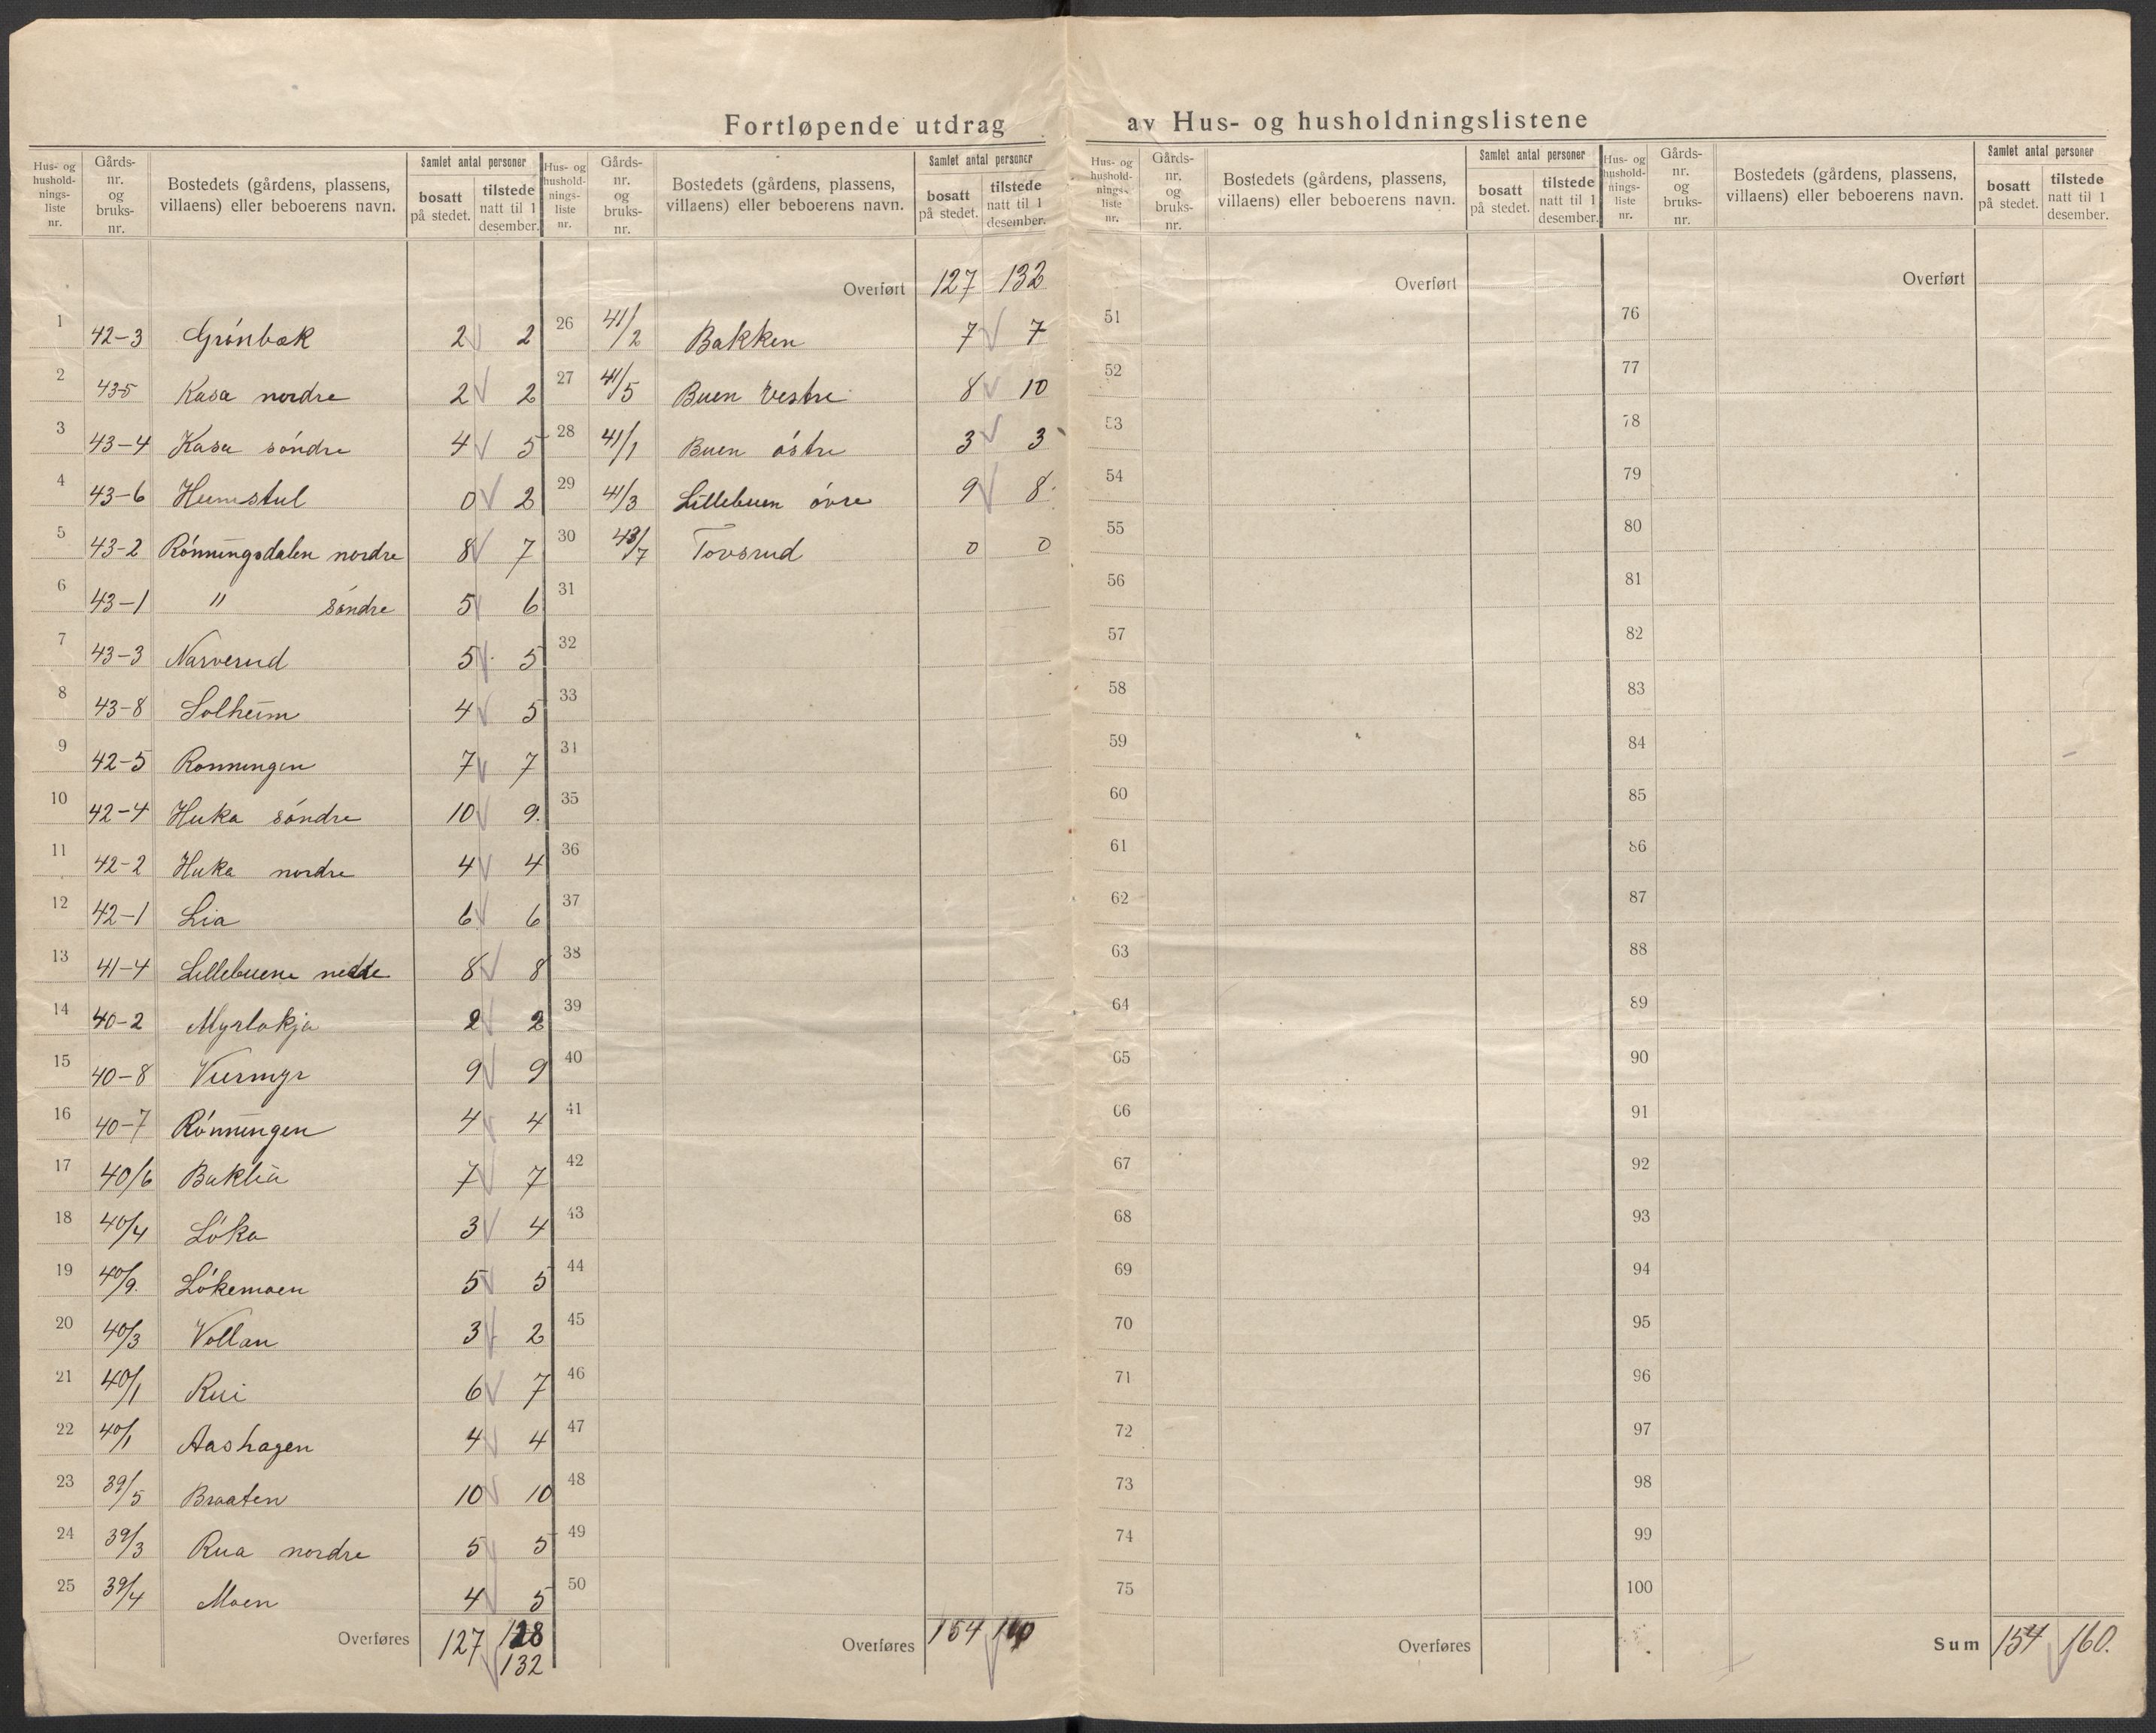 Fortløpende utdrag av Hus- og husholdningslistene
Hus- og hushold-nings-liste nr. | Gårds-nr. og bruks-nr. | Bostedets (gårdens, plassens, villaens) eller beboerens navn. | Samlet antal personer | bosatt på stedet. | tilstede natt til 1 desember.
1 | 42-3 | Grónbæk | 2 | 2
2 | 43-5 | Kasa nordre | 2 | 2
3 | 43-4 | Kasa sóndre | 4 | 5
4 | 43-6 | Humstul | 0 | 2
5 | 43-2 | Rónningsdalen nordre | 8 | 7
6 | 43-1 | " sóndre | 5 | 6
7 | 43-3 | Narverud | 5 | 5
8 | 43-8 | Solheim | 4 | 5
9 | 42-5 | Ronningen | 7 | 7
10 | 42-4 | Huka sóndre | 10 | 9.
11 | 42-2 | Huka nordre | 4 | 4
12 | 42-1 | Lia | 6 | 6
13 | 41-4 | Lillebuene nedre | 8 | 8
14 | 40-2 | Myrlokja | 2 | 2
15 | 40-8 | Viermyr | 9 | 9
16 | 40-7 | Rónningen | 4 | 4
17 | 40/6 | Baklia | 7 | 7
18 | 40/4 | Lóka | 3 | 4
19 | 40/9. | Lókemoen | 5 | 5
20 | 40/3 | Vollan | 3 | 2
21 | 40/1 | Rui | 6 | 7
22 | 40/1 | Aashagen | 4 | 4
23 | 39/5 | Braaten | 10 | 10
24 | 39/3 | Rua nordre | 5 | 5
25 | 39/4 | Moen | 4 | 5
Overføres | 127 | 128
132
Hus- og hushold-nings-liste nr. | Gårds-nr. og bruks-nr. | Bostedets (gårdens, plassens, villaens) eller beboerens navn. | Samlet antal personer | bosatt på stedet. | tilstede natt til 1 desember.
Overført | 127 | 132
26 | 41/2 | Bakken | 7 | 7
27 | 41/5 | Buen Vestre | 8 | 10
28 | 41/1 | Buen óstre | 3 | 3
29 | 41/3 | Lillebuen óvre | 9 | 8
30 | 43/7 | Tovsrud | 0 | 0
31
32
33
34
35
36
37
38
39
40
41
42
43
44
45
46
47
48
49
50
Overføres | 154 | 160
Hus- og hushold-nings-liste nr. | Gårds-nr. og bruks-nr. | Bostedets (gårdens, plassens, villaens) eller beboerens navn. | Samlet antal personer | bosatt på stedet. | tilstede natt til 1 desember.
Overført
51
52
53
54
55
56
57
58
59
60
61
62
63
64
65
66
67
68
69
70
71
72
73
74
75
Overføres
Hus- og hushold-nings-liste nr. | Gårds-nr. og bruks-nr. | Bostedets (gårdens, plassens, villaens) eller beboerens navn. | Samlet antal personer | bosatt på stedet. | tilstede natt til 1 desember.
Overført
76
77
78
79
80
81
82
83
84
85
86
87
88
89
90
91
92
93
94
95
96
97
98
99
100
Sum | 154 | 160.